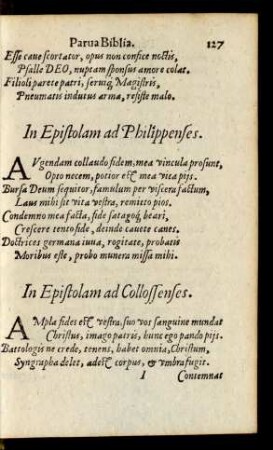 Parua Biblia. 127
Esse caue scortator, opus non confice noctis,
Psalle DEO, nuptam sponsus amore colat.
Filioli parete patri, seruiq́; Magistris,
Pneumatis indutus arma, resiste malo.
In Epistolam ad Philippenses.
AVgendam collaudo fidem, mea vincula prosunt,
Opto necem, potior est́ mea vita pijs.
Bursa Deum sequitor, famulum per viscera factum,
Laus mihi sit vita vestra, remitto pios.
Condemno mea facta, fide satagoq́; beari,
Crescere tento fide, deinde cauete canes.
Doctrices germana iuua, rogitate, probatis
Moribus este, probo munera missa mihi.
In Epistolam ad Collossenses.
AMpla fides est́ vestra, suo vos sanguine mundat
Christus, imago patris, hunc ego pando pijs.
Battologis ne crede, tenens, habet omnia, Christum,
Syngrapha delet, adest́ corpus, & vmbra fugit.
I Contemnat